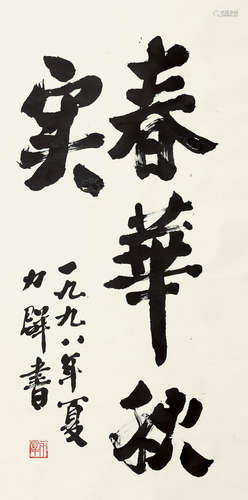 春華秋
实
一九九八年夏
力群書